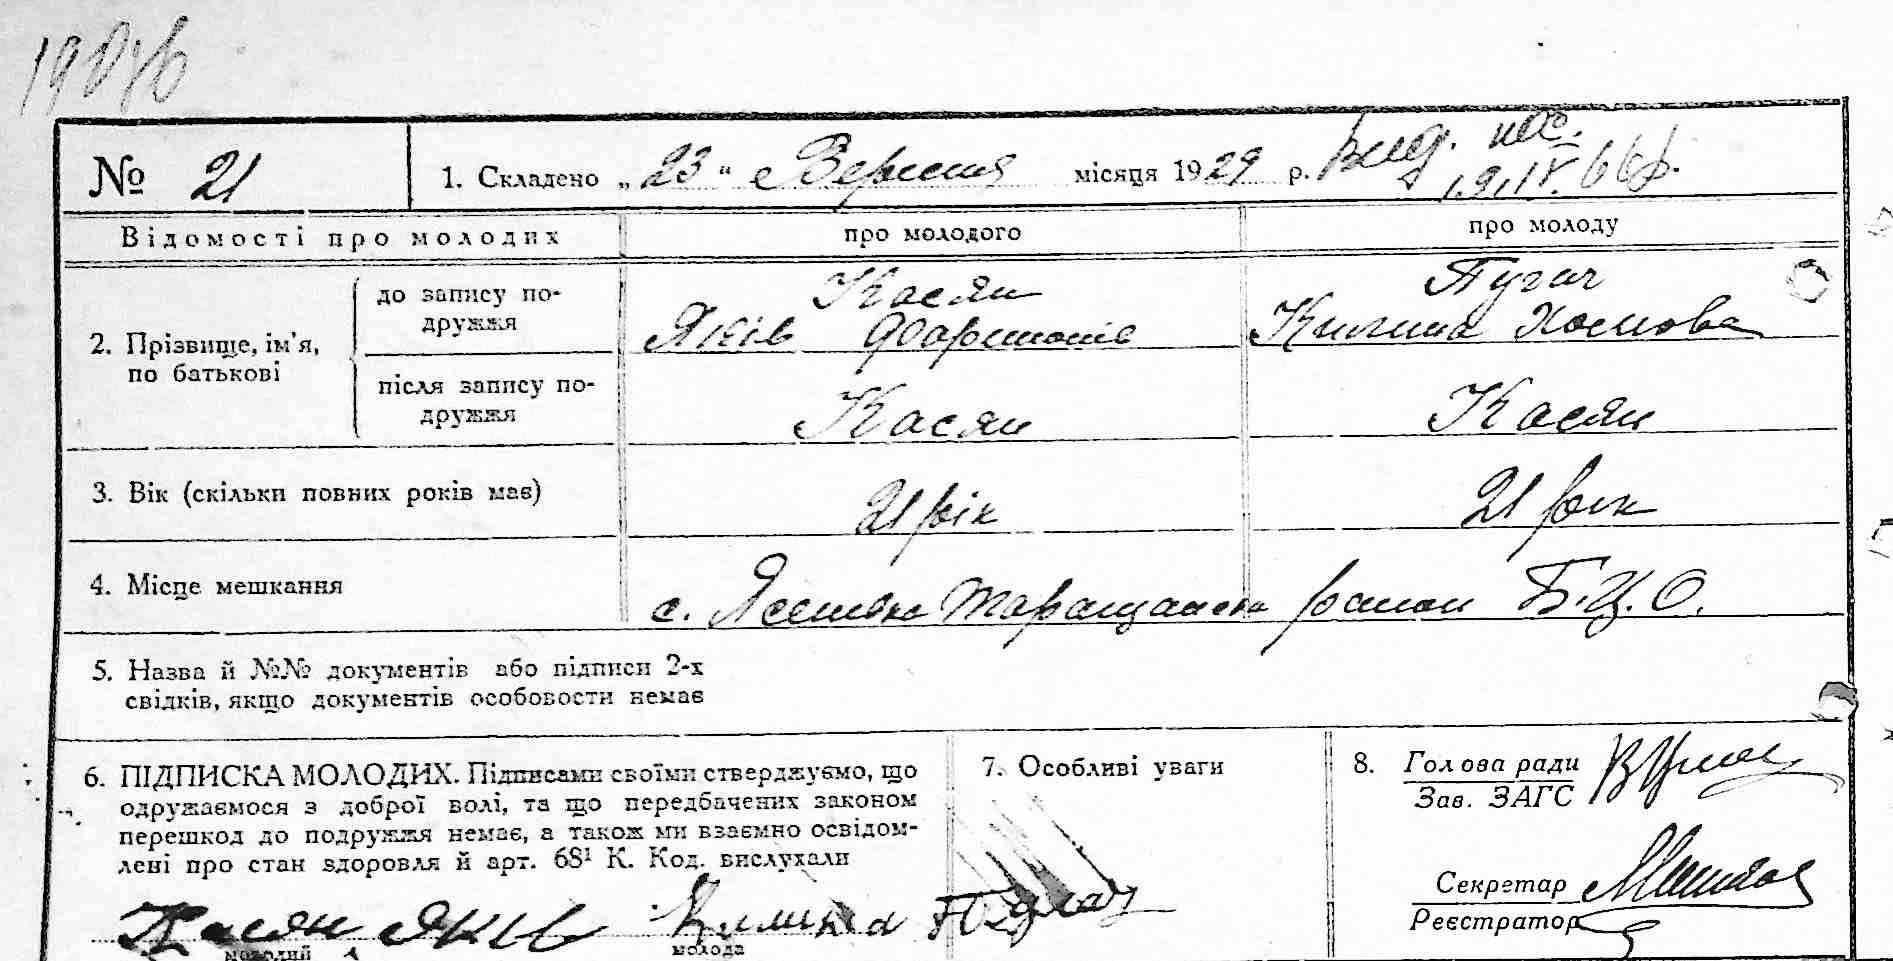 № 21
1. Складено „23" Вересня місяця 1929 р.
19.IV.66р.
Відомості про молодих
про молодого
про молоду
2. Прізвище, ім'я,
по батькові
до запису по-
дружжя
Касян
Яків
Пугач
Килина Хомова
після запису по-
дружжя
Касян
Касян
3. Вік (скільки повних років має)
21 рік
21 рік
4. Місце мешкання
с. Ясенівка Таращанськ район Б.Ц.О.
5. Назва й №№ документів або підписи 2-х
свідків, якщо документів особовости немає
6. ПІДПИСКА МОЛОДИХ. Підписами своїми стверджуємо, що
одружаємося з доброї волі, та що передбачених законом
перешкод до подружжя немає, а також ми взаємно освідом-
лені про стан здоровля й арт. 68¹ К. Код. вислухали
Касян Яків
молодий
Килина Пугач
молода
7. Особливі уваги
8. Голова ради
Зав. ЗАГС
Секретар
Реєстратор